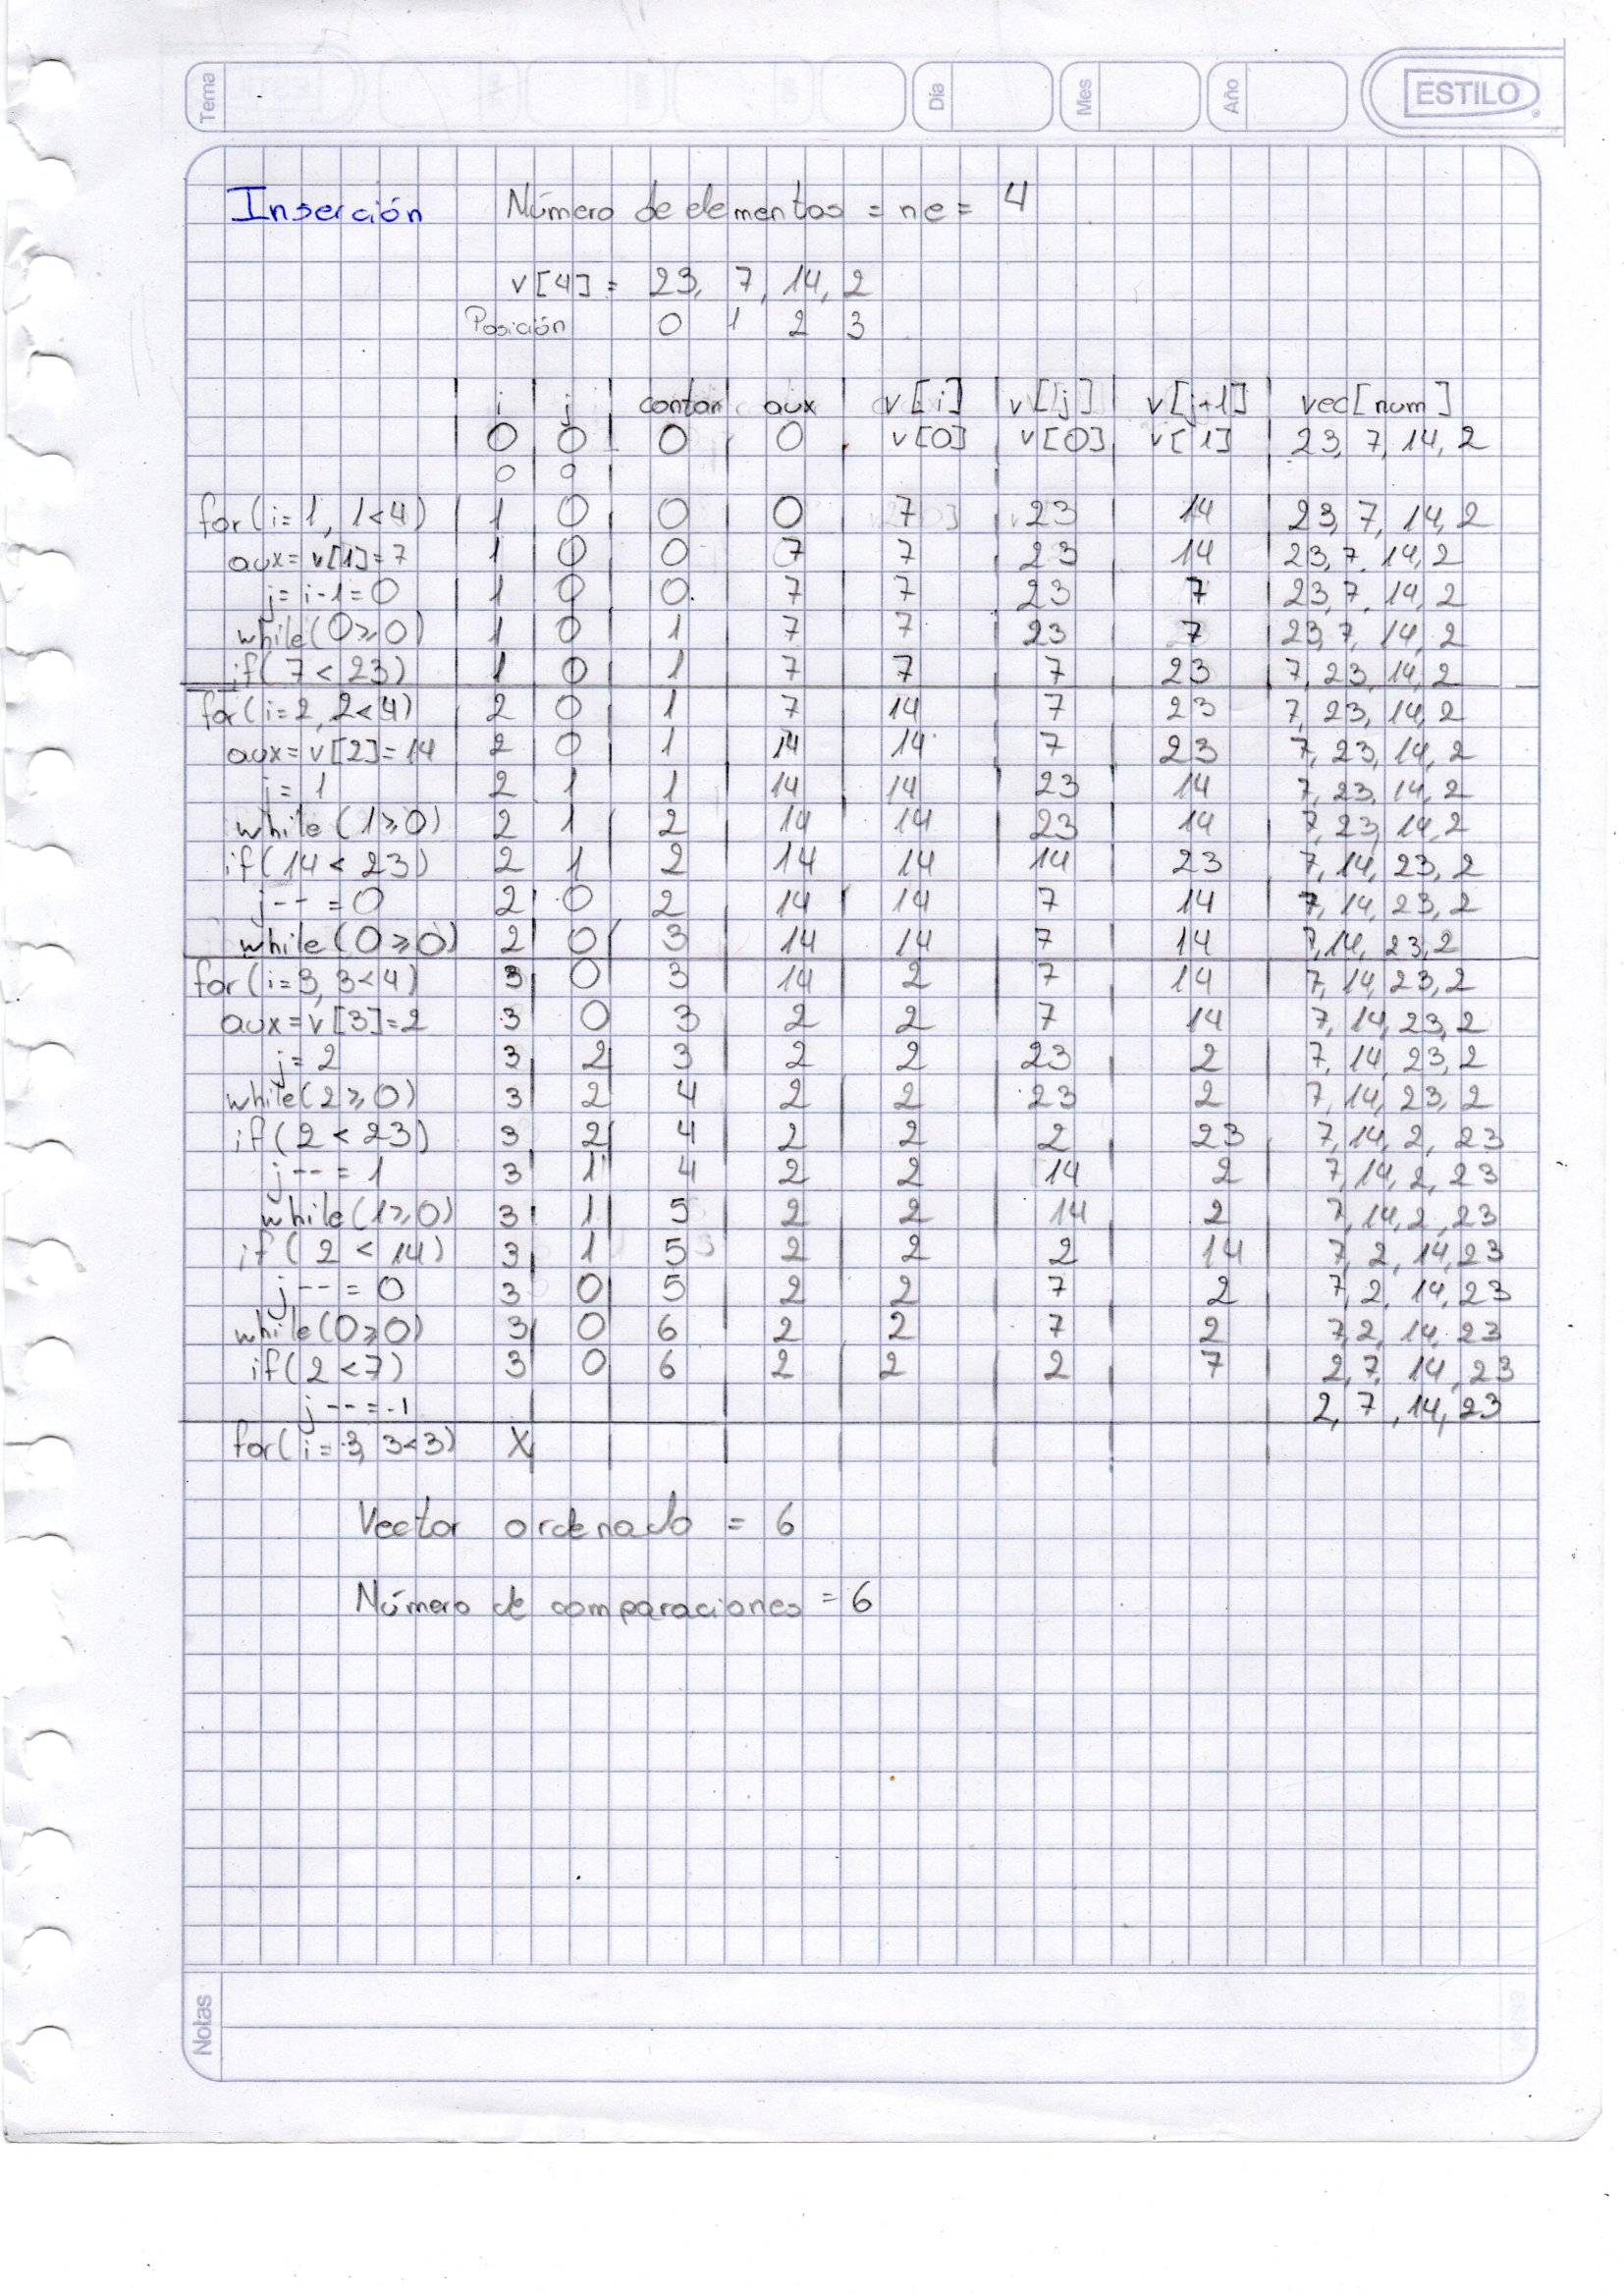 Tema Día Mes Año ESTILO
Inserción Número de elementos = ne = 4
v[4] = 23, 7, 14, 2
Posición 0 1 2 3
i j contar aux v[i] v[j] v[j+1] vec[num]
0 0 0 0 v[0] v[0] v[1] 23, 7, 14, 2
0 0
for(i=1, 1<4) 1 0 0 0 7 23 14 23, 7, 14, 2
aux=v[1]=7 1 0 0 7 7 23 14 23, 7, 14, 2
j= i-1=0 1 0 0 7 7 23 7 23, 7, 14, 2
while(0≥0) 1 0 1 7 7 23 7 23, 7, 14, 2
if(7<23) 1 0 1 7 7 7 23 7, 23, 14, 2
for(i=2, 2<4) 2 0 1 7 14 7 23 7, 23, 14, 2
aux=v[2]=14 2 0 1 14 14 7 23 7, 23, 14, 2
j= 1 2 1 1 14 14 23 14 7, 23, 14, 2
while (1≥0) 2 1 2 14 14 23 14 7, 23, 14, 2
if(14 < 23) 2 1 2 14 14 14 23 7, 14, 23, 2
j-- = 0 2 0 2 14 14 7 14 7, 14, 23, 2
while(0≥0) 2 0 3 14 14 7 14 7, 14, 23, 2
for(i=3, 3<4) 3 0 3 14 2 7 14 7, 14, 23, 2
aux=v[3]=2 3 0 3 2 2 7 14 7, 14, 23, 2
j=2 3 2 3 2 2 23 2 7, 14, 23, 2
while(2≥0) 3 2 4 2 2 23 2 7, 14, 23, 2
if(2<23) 3 2 4 2 2 2 23 7, 14, 2, 23
j-- = 1 3 1 4 2 2 14 2 7, 14, 2, 23
while(1≥0) 3 1 5 2 2 14 2 7, 14, 2, 23
if( 2 < 14) 3 1 5 2 2 2 14 7, 2, 14, 23
j-- = 0 3 0 5 2 2 7 2 7, 2, 14, 23
while(0≥0) 3 0 6 2 2 7 2 7, 2, 14, 23
if(2<7) 3 0 6 2 2 2 7 2, 7, 14, 23
j-- = -1 2, 7, 14, 23
for(i=3, 3<3) X
Vector ordenado = 6
Número de comparaciones = 6
Notas